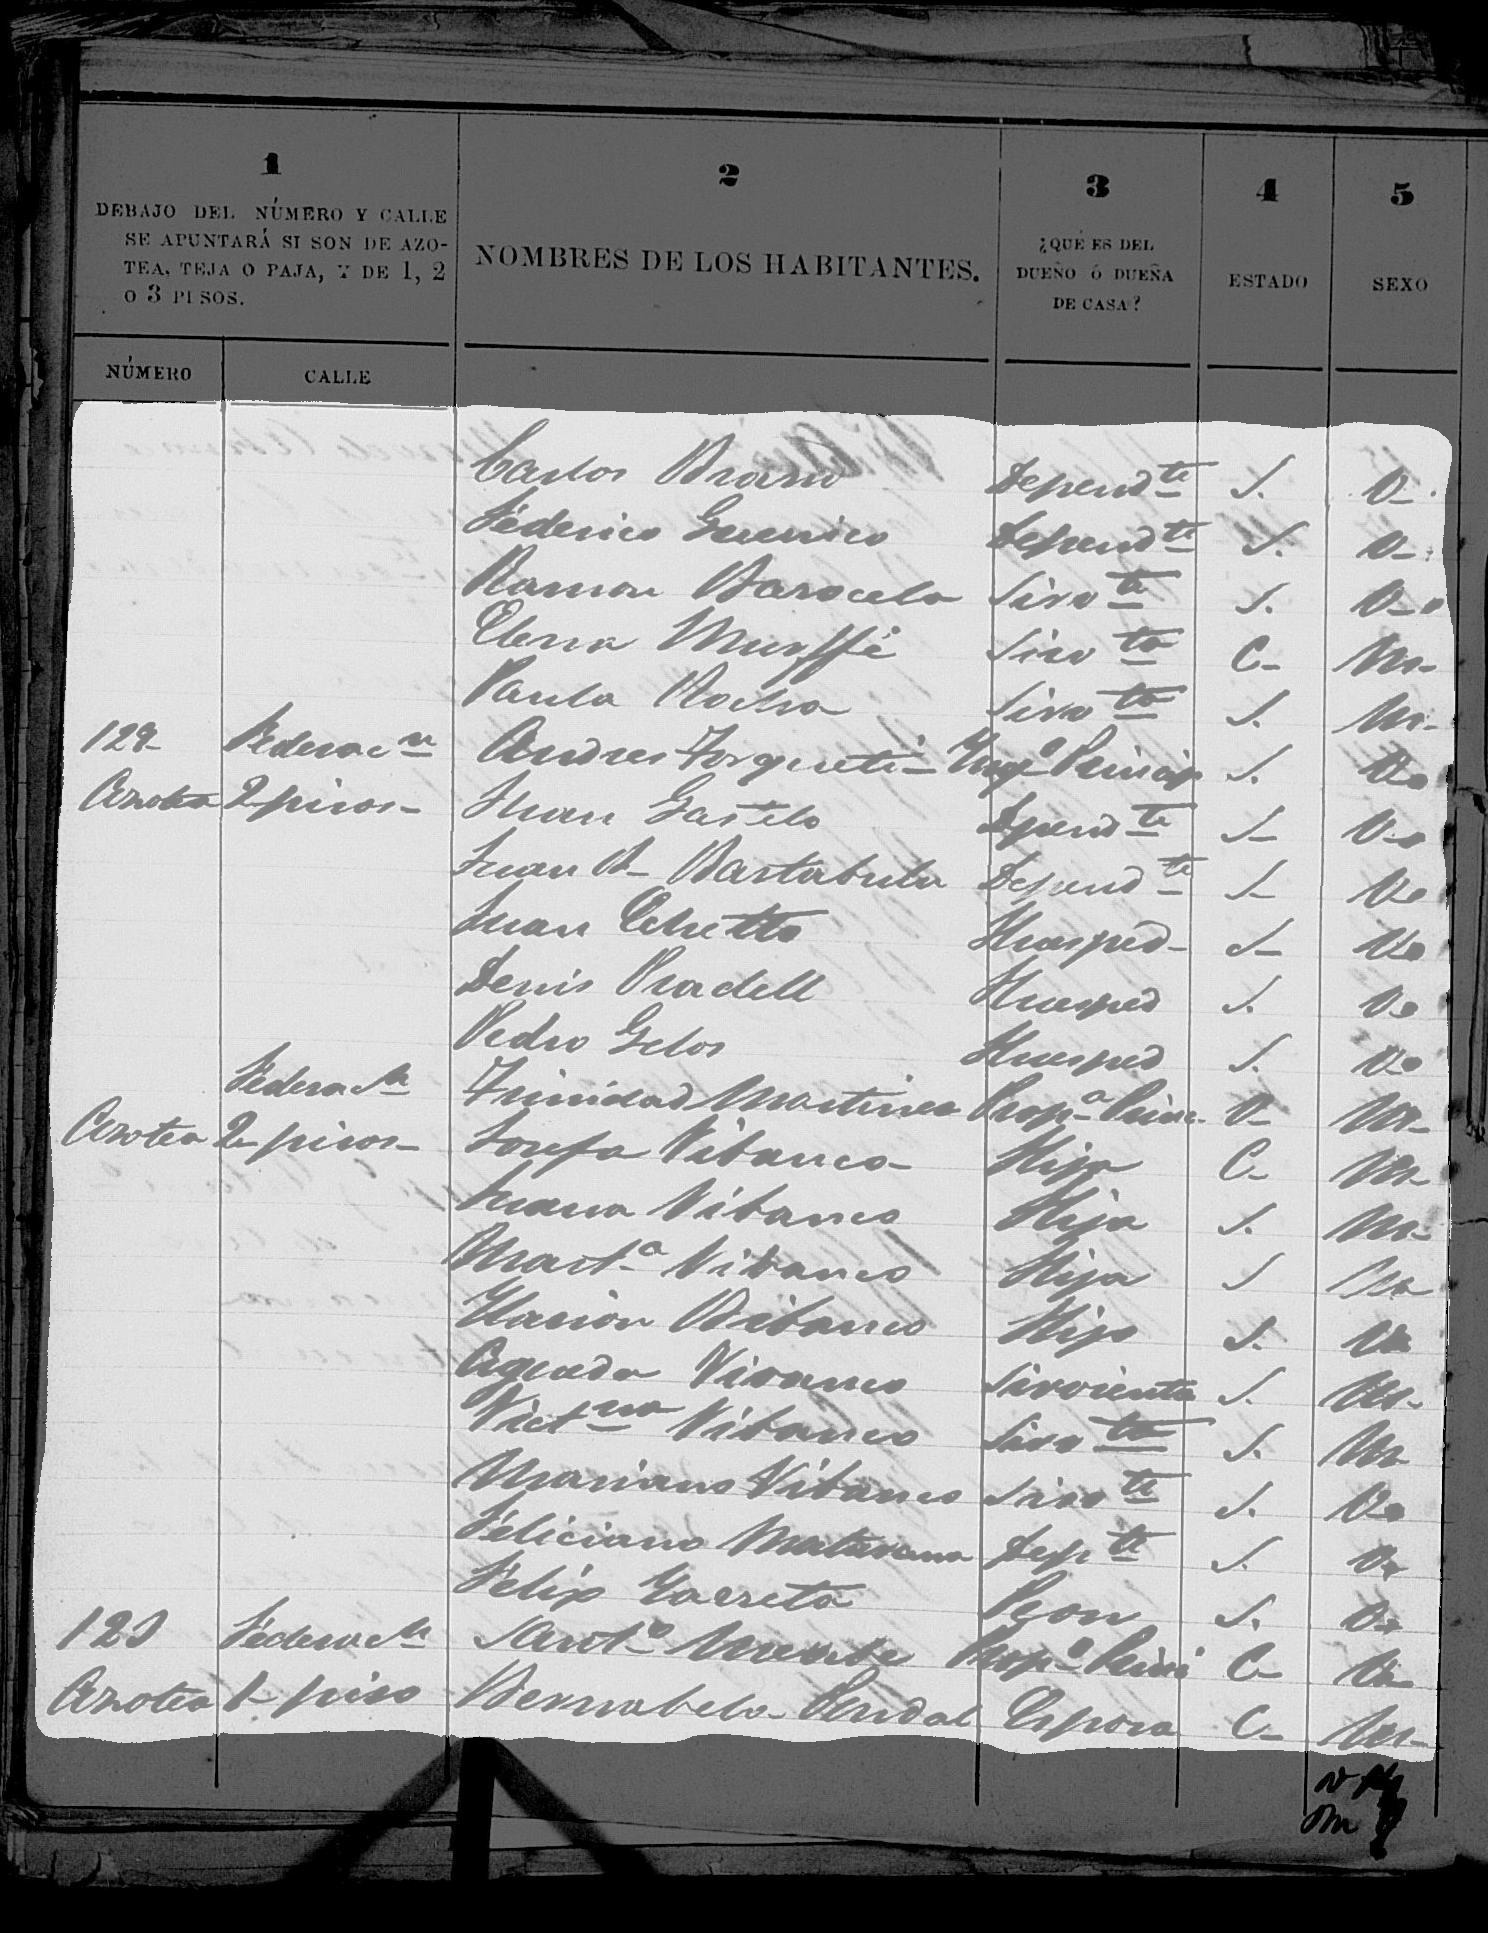 1 2 3 4 5
DEBAJO DEL NÚMERO Y CALLE
SE APUNTARÁ SI SON DE AZO-
TEA, TEJA O PAJA, Y DE 1, 2
O 3 PISOS.
NOMBRES DE LOS HABITANTES.
¿QUÉ ES DEL
DUEÑO Ó DUEÑA
DE CASA?
ESTADO
SEXO
NÚMERO CALLE
Carlos Dependte S. V-
Federico Dependte S. V-
Ramon Barocela Sirvte S. V-
Elena Murffi Sirvta C- M-
Paula Rocha Sirvta S. M-
Federacn Andres Torqueti- Inqo Princip S. V-
Azotea 2 pisos- Juan Dpendte S- V-
Juan B- Bartabulu Dependte S- V-
Juan Huesped- S- V-
Denis Pradell Huesped S. V-
Pedro Gelos Huesped S. V-
Federacn Trinidad Martinez Propa Princ. V- M-
Azotea 2 pisos- Josefa Vibanco- Hija C- M-
Juana Vibanco Hija S. M-
Marta Vibanco Hija S M
Ilarion Bibanco Hijo S. V-
Agueda Vivanco Sirvienta S. M-
Victna Vibanco Sirvta S. M
Mariano Vibanco Sirvte S. V-
Feliciano Depte S. V-
Felix Garreta Peon S. V-
123 Federacn Santo Propo Princi C- V-
Azotea 1- piso Bernabela- Pendal Esposa C- M-